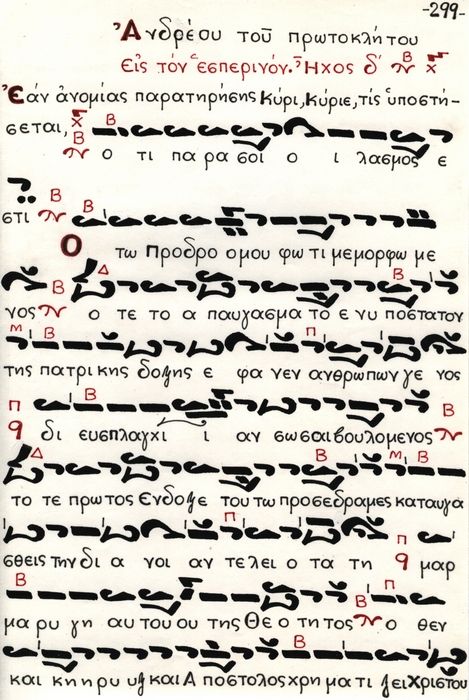 -299-
Ἀνδρέου τοῦ πρωτοκλήτου
Εἰς τόν ἑσπερινόν. Ἦχος δ΄ Β
Ἐάν ἀνομίας παρατηρήσῃς Κύριε, Κύριε, τίς ὑποστή-
σεται, Β
Β ο τι πα ρα σοι ο ι λασμος ε
στι Β Β
Ο τω Προδρο ομου φω τι μεμορφω με
Δ Β
νος Β ο τε το α παυγασμα το ε νυ ποστατον
Μ Β Π
της πατρι κης δοξης ε φα νεν ανθρωπων γε νος
Π Β Β
δι ευσπλαγχι ι αν σωσαι βουλομενος
Δ Β Μ Β
το τε πρωτος Ενδοξε του τω προσεδραμες καταυγα
Π Π
σθεις την δι α νοι αν τελει ο τα τη μαρ
Β Β Π
μα ρυ γη αυτου ου της Θε ο τητος ο θεν
Β
και κη ηρυξ και Α ποστολος χρη μα τι ζει Χριστου